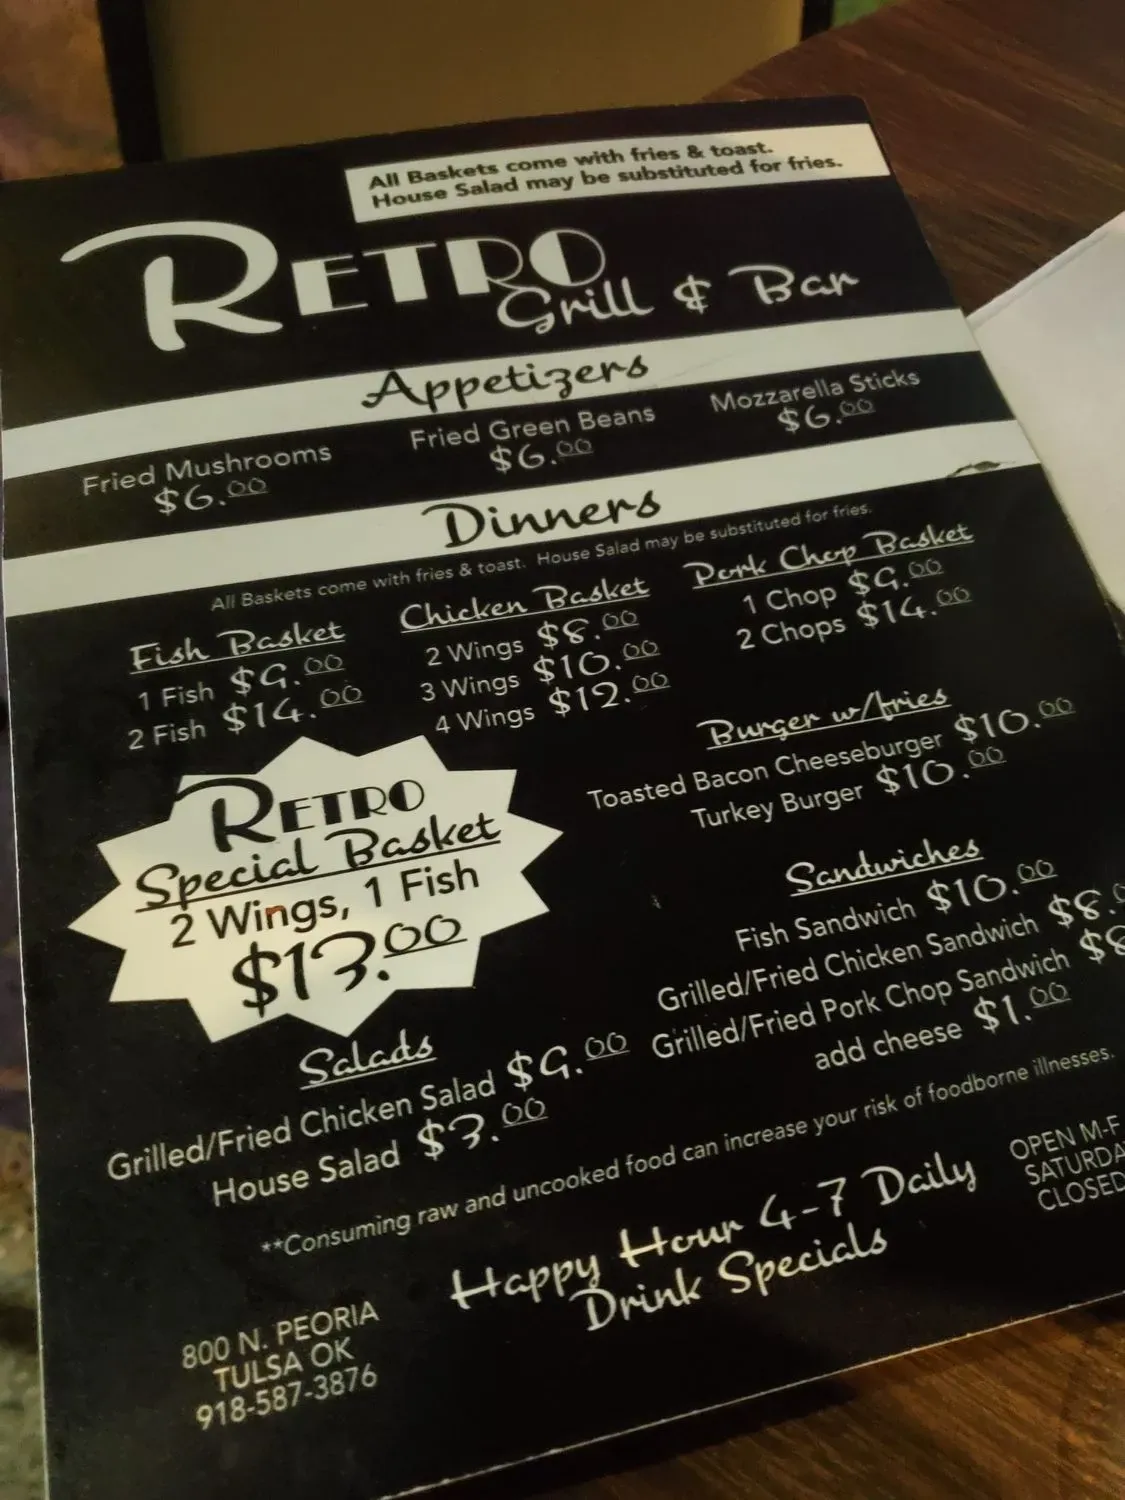 All Baskets come with fries & toast.
House Salad may be substituted for fries.
RETRO
Grill & Bar
Appetizers
Fried Mushrooms
$6.00
Fried Green Beans
$6.00
Mozzarella Sticks
$6.00
Dinners
All Baskets come with fries & toast. House Salad may be substituted for fries.
Fish Basket
1 Fish $9.00
2 Fish $14.00
Chicken Basket
2 Wings $8.00
3 Wings $10.00
4 Wings $12.00
Pork Chop Basket
1 Chop $9.00
2 Chops $14.00
Burger w/fries
Toasted Bacon Cheeseburger $10.00
Turkey Burger $10.00
RETRO
Special Basket
2 Wings, 1 Fish
$13.00
Sandwiches
Fish Sandwich $10.00
Grilled/Fried Chicken Sandwich $8.0
Grilled/Fried Pork Chop Sandwich $8
add cheese $1.00
Salads
Grilled/Fried Chicken Salad $9.00
House Salad $3.00
**Consuming raw and uncooked food can increase your risk of foodborne illnesses.
Happy Hour 4-7 Daily
Drink Specials
OPEN M-F
SATURDA
CLOSED
800 N. PEORIA
TULSA OK
918-587-3876